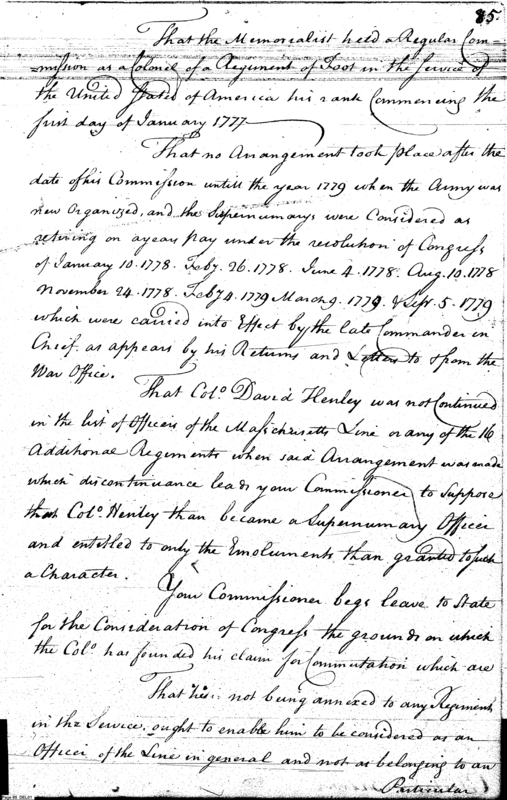 85.
That the Memorialist held a Regular Com-
mission as a Colonel of a Regiment of Foot in the Service of
the United States of America his rank Commencing the
first day of January 1777
That no Arrangement took place after the
date of his Commission untill the year 1779 when the Army was
new Organized, and the Supernumarys were Considered as
retiring on a years pay under the resolution of Congress
of January 10. 1778. Feby. 26. 1778. June 4. 1778. Aug. 10. 1778
November 24. 1778. Feby 4. 1779 March 9. 1779. & Sept. 5. 1779
which were carried into Effect by the late Commander in
Chief. as appears by his Returns and Letters to & from the
War Office.
That Colo. David Henley was not Continued
in the list of Officers of the Massachusetts Line or any of the 16
Additional Regiments when said Arrangement was made
which discontinuance leads your Commissioner to Suppose
that Colo. Henley than became a Supernumary Officer
and entitled to only the Emoluments than granted to such
a Character.
Your Commissioner begs leave to State
for the Consideration of Congress the grounds on which
the Colo. has founded his claim for Commutation which are
That his not being annexed to any Regiment
in the Service. ought to enable him to be considered as an
Officer of the Line in general and not as belonging to an
Particular